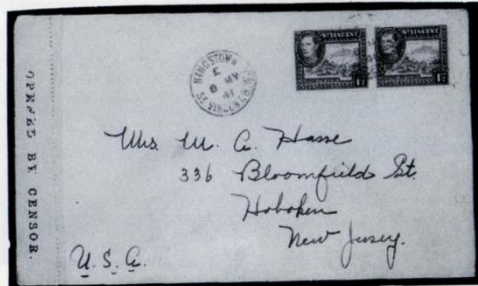 OPENED BY CENSOR.
KINGSTOWN
E
8 MY
41
ST. VINCENT
ST VINCENT
1½
ST VINCENT
1½
Mrs. M. A. Hasse
336 Bloomfield St.
Hoboken
New Jersey.
U. S. A.